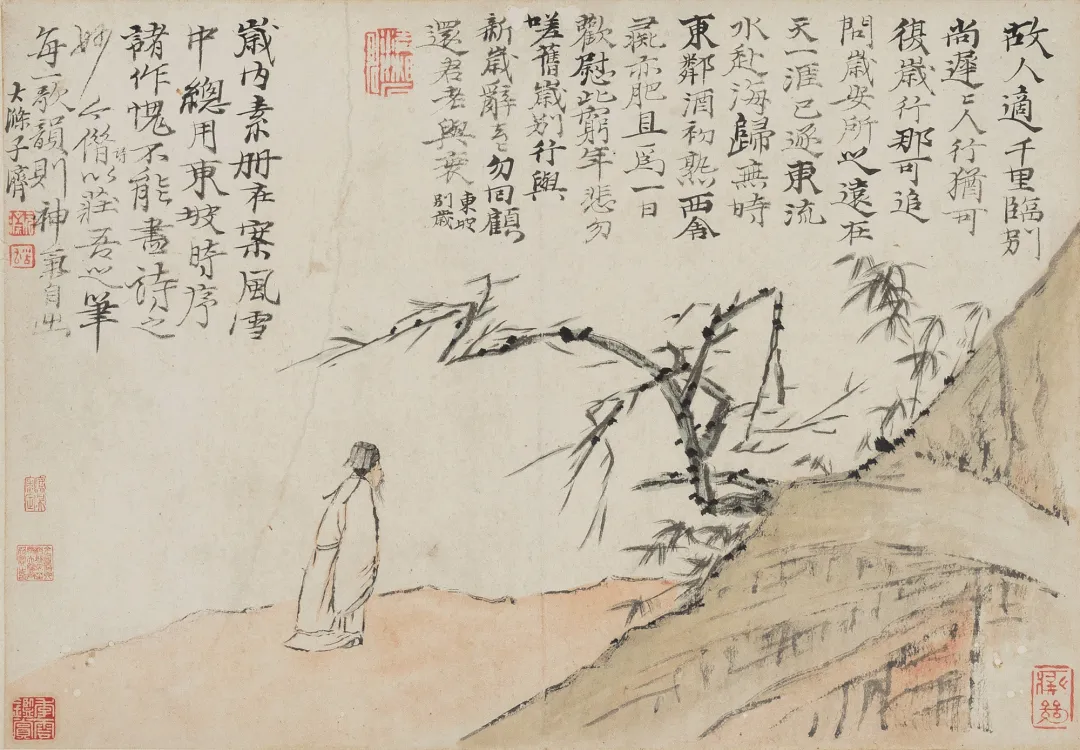 故人適千里臨別
尚遲遲人行猶可
復歲行那可追
問歲安所之遠在
天一涯已逐東流
水赴海歸無時
東鄰酒初熟西舍
彘亦肥且為一日
歡慰此窮年悲勿
嗟舊歲別行與
新歲辭去勿回顧
還君老與衰 東坡別歲
歲內素冊在案風雪
中總用東坡時序
諸作愧不能盡詩之
妙今借詩以莊吾之筆
每一歌韻則神氣自出
大滌子濟